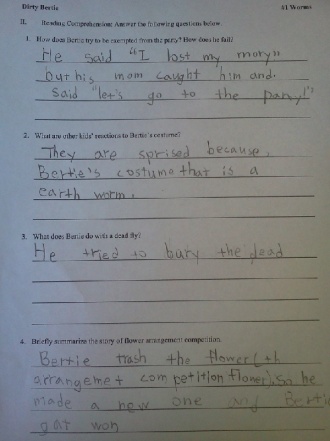 Dirty Bertie #1 Worms
II. Reading Comprehension: Answer the following questions below.
1. How does Bertie try to be exempted from the party? How does he fail?
He said "I lost my mory"
but his mom caught him and.
said "let's go to the pany!"
2. What are other kids' reactions to Bertie's costume?
They are sprised because.
Bertie's costume that is a
earth worm.
3. What does Bertie do with a dead fly?
He tried to bury the dead
4. Briefly summarize the story of flower arrangement competition.
Bertie trash the flower (th
arrangemet competition flower). So he
made a new one and Berti
gat won